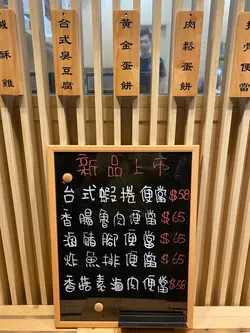 鹹酥雞
台式臭豆腐
黃金蛋餅
肉鬆蛋餅
新品上市
台式蝦捲便當 $58
香腸魯肉便當 $65
海豬腳便當 $65
炸魚排便當 $65
香菇素滷肉便當 $58